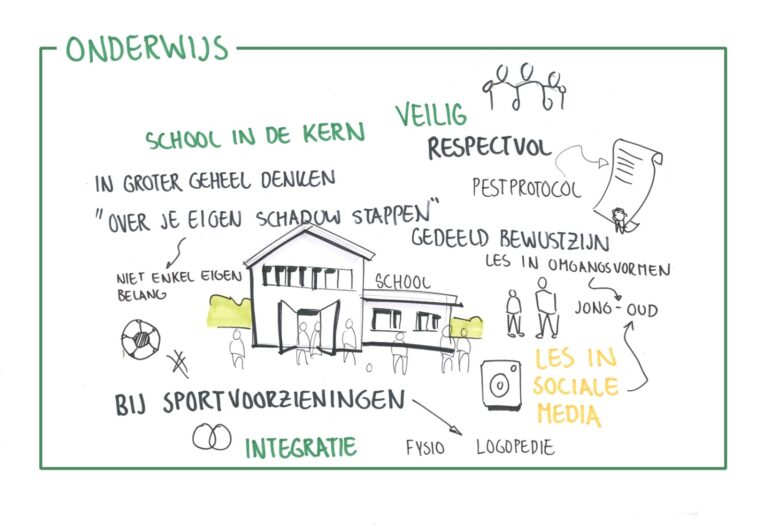 ONDERWIJS
VEILIG
SCHOOL IN DE KERN
RESPECTVOL
IN GROTER GEHEEL DENKEN
PESTPROTOCOL
"OVER JE EIGEN SCHADUW STAPPEN"
GEDEELD BEWUSTZIJN
LES IN OMGANGSVORMEN
NIET ENKEL EIGEN
BELANG
SCHOOL
JONG-OUD
LES IN
SOCIALE
MEDIA
BIJ SPORTVOORZIENINGEN
INTEGRATIE
FYSIO
LOGOPEDIE